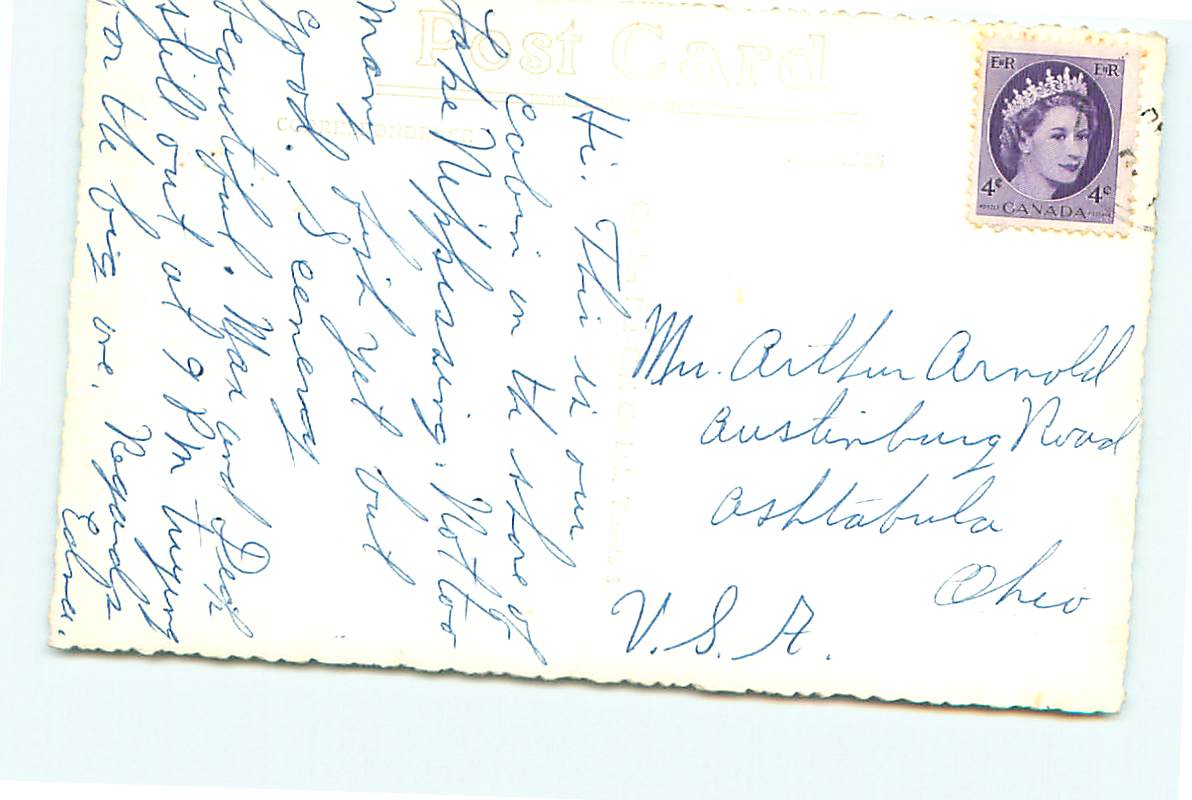 Post Card
CORRESPONDENCE
ADDRESS
E II R
E II R
4¢
4¢
CANADA
Hi. This is our
cabin on the shore of
Lake Nippissing. Not too
many fish yet but
good. Scenery
beautiful. Max and Dear
still out at 9 PM trying
for the big one. Regards
Edna.
Mr. Arthur Arnold
Austinburg Road
Ashtabula
Ohio
U.S.A.